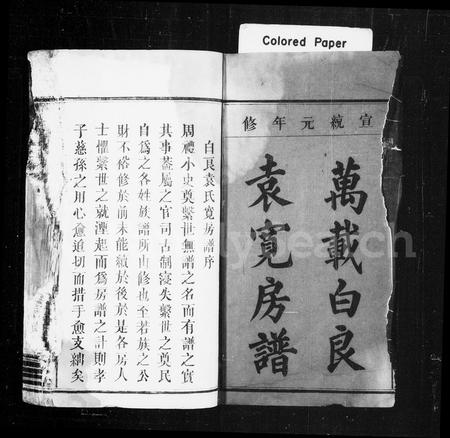 Colored Paper
宣統元年修
萬載白良
袁寬房譜
白良袁氏寬房譜序
周禮小史奠繫世無譜之名而有譜之實
其事蓋屬之官司古制寖失繫世之奠民
自為之各姓族譜所由修也至若族之公
財不俗修於前未能續於後於是各房人
士懼繫世之就湮起而為房譜之計則孝
子慈孫之用心愈迫切而措手愈支絀矣